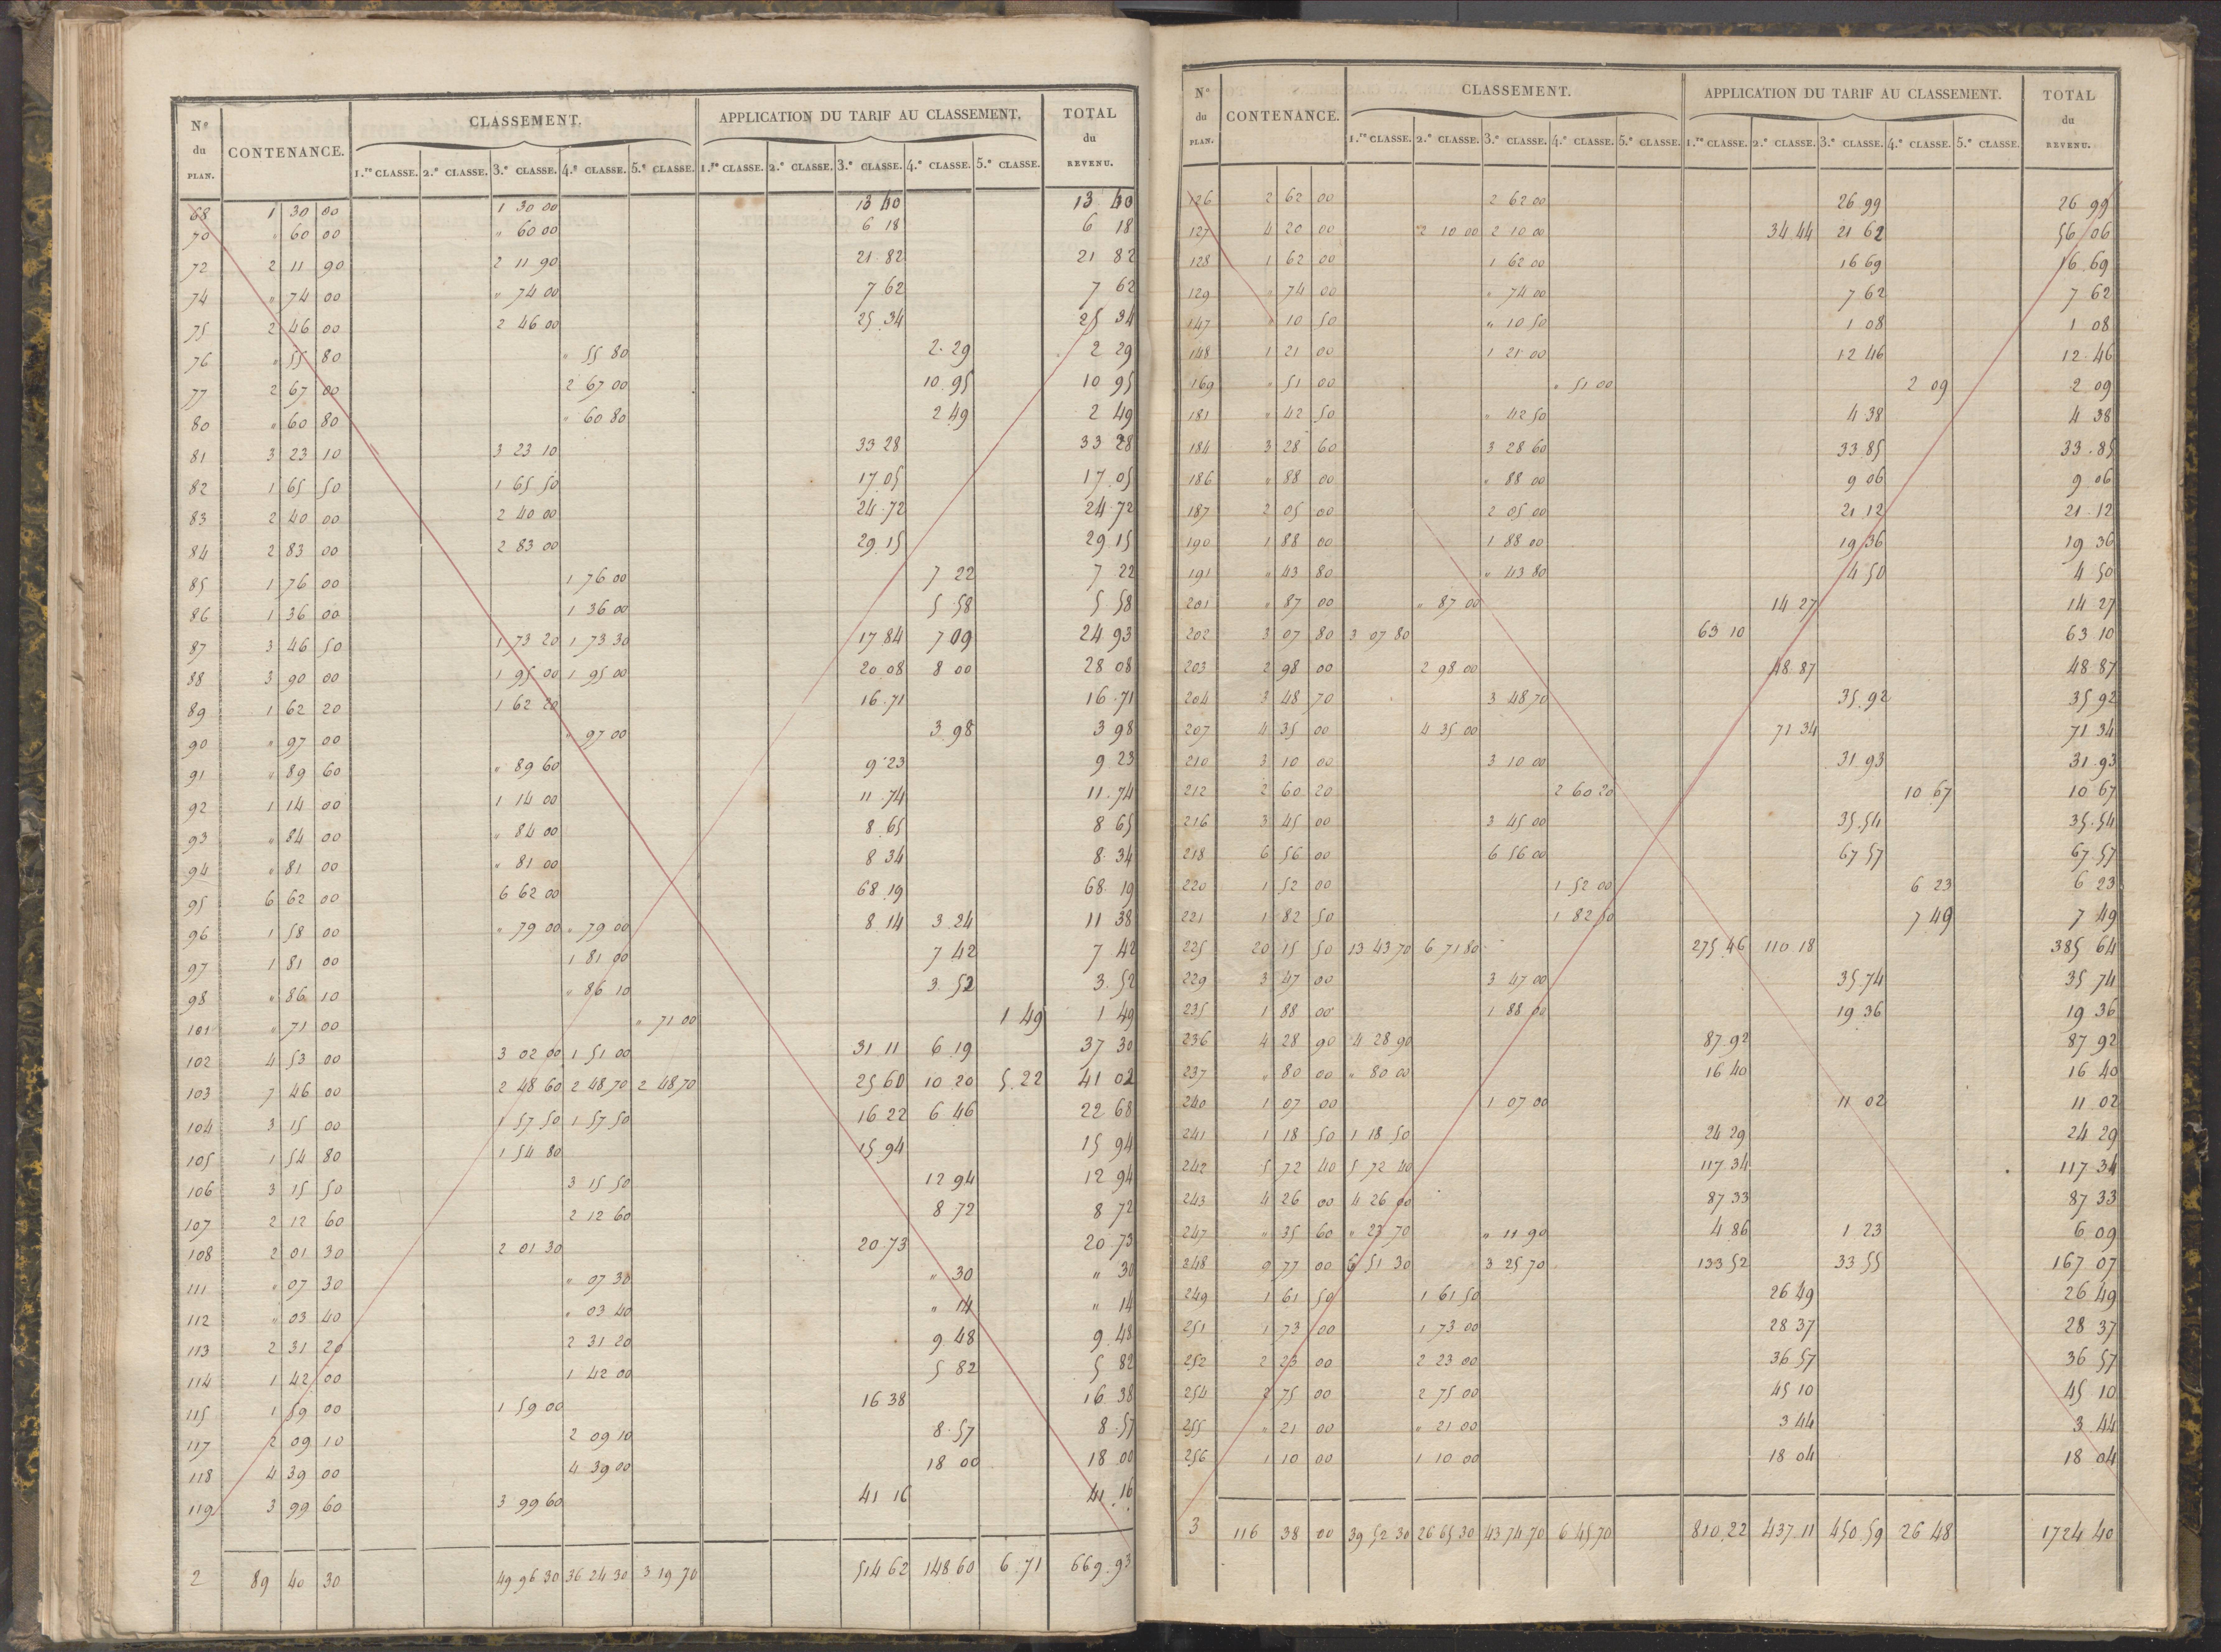 N.º du PLAN. CONTENANCE. CLASSEMENT. APPLICATION DU TARIF AU CLASSEMENT. TOTAL du REVENU.
1.re CLASSE. 2.e CLASSE. 3.e CLASSE. 4.e CLASSE. 5.e CLASSE. 1.re CLASSE. 2.e CLASSE. 3.e CLASSE. 4.e CLASSE. 5.e CLASSE.
68 1 30 00 1 30 00 13 40 13 40
70 " 60 00 " 60 00 6 18 6 18
72 2 11 90 2 11 90 21 82 21 82
74 " 74 00 " 74 00 7 62 7 62
75 2 46 00 2 46 00 25 34 25 34
76 " 55 80 " 55 80 2 29 2 29
77 2 67 00 2 67 00 10 95 10 95
80 " 60 80 " 60 80 2 49 2 49
81 3 23 10 3 23 10 33 28 33 28
82 1 65 50 1 65 50 17 05 17 05
83 2 40 00 2 40 00 24 72 24 72
84 2 83 00 2 83 00 29 15 29 15
85 1 76 00 1 76 00 7 22 7 22
86 1 36 00 1 36 00 5 58 5 58
87 3 46 50 1 73 20 1 73 30 17 84 7 09 24 93
88 3 90 00 1 95 00 1 95 00 20 08 8 00 28 08
89 1 62 20 1 62 20 16 71 16 71
90 " 97 00 " 97 00 3 98 3 98
91 " 89 60 " 89 60 9 23 9 23
92 1 14 00 1 14 00 11 74 11 74
93 " 84 00 " 84 00 8 65 8 65
94 " 81 00 " 81 00 8 34 8 34
95 6 62 00 6 62 00 68 19 68 19
96 1 58 00 " 79 00 " 79 00 8 14 3 24 11 38
97 1 81 00 1 81 00 7 42 7 42
98 " 86 10 " 86 10 3 52 3 52
101 " 71 00 " 71 00 1 49 1 49
102 4 53 00 3 02 00 1 51 00 31 11 6 19 37 30
103 7 46 00 2 48 60 2 48 70 2 48 70 25 60 10 20 5 22 41 02
104 3 15 00 1 57 50 1 57 50 16 22 6 46 22 68
105 1 54 80 1 54 80 15 94 15 94
106 3 15 50 3 15 50 12 94 12 94
107 2 12 60 2 12 60 8 72 8 72
108 2 01 30 2 01 30 20 73 20 73
111 " 07 30 " 07 30 " 30 " 30
112 " 03 40 " 03 40 " 14 " 14
113 2 31 20 2 31 20 9 48 9 48
114 1 42 00 1 42 00 5 82 5 82
115 1 59 00 1 59 00 16 38 16 38
117 2 09 10 2 09 10 8 57 8 57
118 4 39 00 4 39 00 18 00 18 00
119 3 99 60 3 99 60 41 16 41 16
2 89 40 30 49 96 30 36 24 30 3 19 70 514 62 148 60 6 71 669 93
N.º du PLAN. CONTENANCE. CLASSEMENT. APPLICATION DU TARIF AU CLASSEMENT. TOTAL du REVENU.
1.re CLASSE. 2.e CLASSE. 3.e CLASSE. 4.e CLASSE. 5.e CLASSE. 1.re CLASSE. 2.e CLASSE. 3.e CLASSE. 4.e CLASSE. 5.e CLASSE.
126 2 62 00 2 62 00 26 99 26 99
127 4 20 00 2 10 00 2 10 00 34 44 21 62 56 06
128 1 62 00 1 62 00 16 69 16 69
129 " 74 00 " 74 00 7 62 7 62
147 " 10 50 " 10 50 1 08 1 08
148 1 21 00 1 21 00 12 46 12 46
169 " 51 00 " 51 00 2 09 2 09
181 " 42 50 " 42 50 4 38 4 38
184 3 28 60 3 28 60 33 85 33 85
186 " 88 00 " 88 00 9 06 9 06
187 2 05 00 2 05 00 21 12 21 12
190 1 88 00 1 88 00 19 36 19 36
191 " 43 80 " 43 80 4 50 4 50
201 " 87 00 " 87 00 14 27 14 27
202 3 07 80 3 07 80 63 10 63 10
203 2 98 00 2 98 00 48 87 48 87
204 3 48 70 3 48 70 35 92 35 92
207 4 35 00 4 35 00 71 34 71 34
210 3 10 00 3 10 00 31 93 31 93
212 2 60 20 2 60 20 10 67 10 67
216 3 45 00 3 45 00 35 54 35 54
218 6 56 00 6 56 00 67 57 67 57
220 1 52 00 1 52 00 6 23 6 23
221 1 82 50 1 82 50 7 49 7 49
225 20 15 50 13 43 70 6 71 80 275 46 110 18 385 64
229 3 47 00 3 47 00 35 74 35 74
235 1 88 00 1 88 00 19 36 19 36
236 4 28 90 4 28 90 87 92 87 92
237 " 80 00 " 80 00 16 40 16 40
240 1 07 00 1 07 00 11 02 11 02
241 1 18 50 1 18 50 24 29 24 29
242 5 72 40 5 72 40 117 34 117 34
243 4 26 00 4 26 00 87 33 87 33
247 " 35 60 " 23 70 " 11 90 4 86 1 23 6 09
248 9 77 00 6 51 30 3 25 70 133 52 33 55 167 07
249 1 61 50 1 61 50 26 49 26 49
251 1 73 00 1 73 00 28 37 28 37
252 2 23 00 2 23 00 36 57 36 57
254 2 75 00 2 75 00 45 10 45 10
255 " 21 00 " 21 00 3 44 3 44
256 1 10 00 1 10 00 18 04 18 04
3 116 38 00 39 52 30 26 65 30 43 74 70 6 45 70 810 22 437 11 450 59 26 48 1724 40